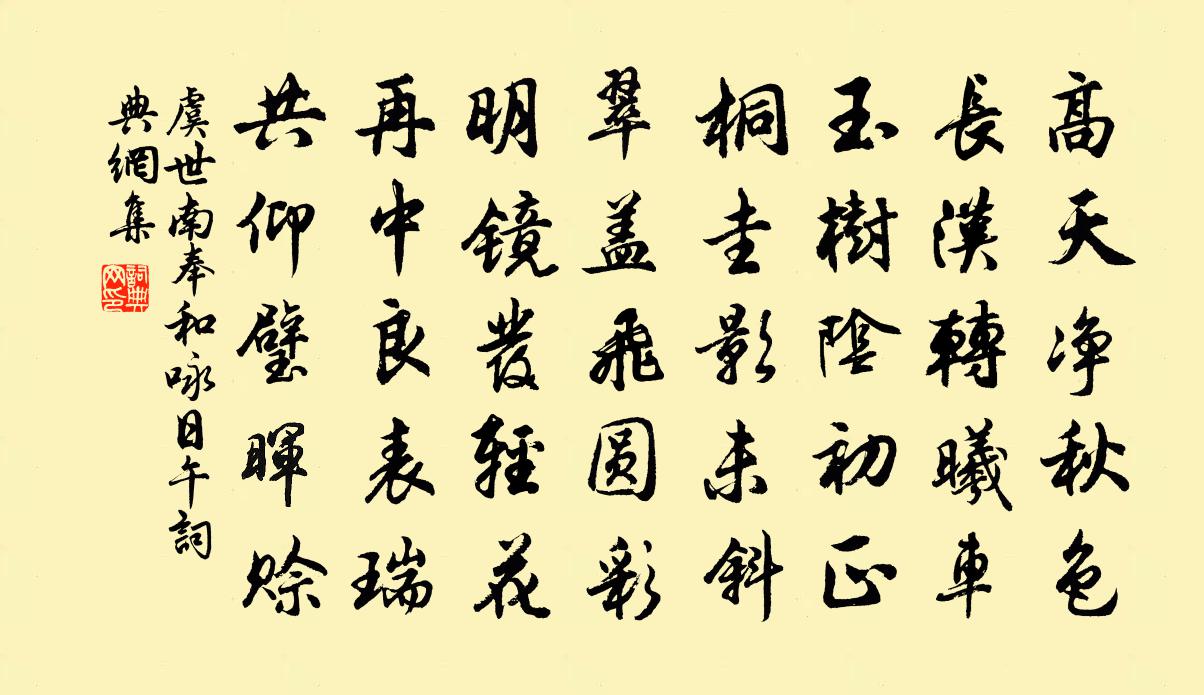 高天净秋色
長漢轉曦車
玉樹陰初正
桐圭影未斜
翠盖飛圓彩
明鏡發輕花
再中良表瑞
共仰璧暉賒
虞世南奉和咏日午詞
典網集
詞典網印